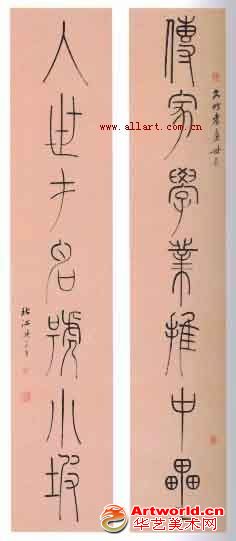 傳家學業推中壘
入世才名號小坡
www.allart.com.cn
Artworld.cn
华艺美术网